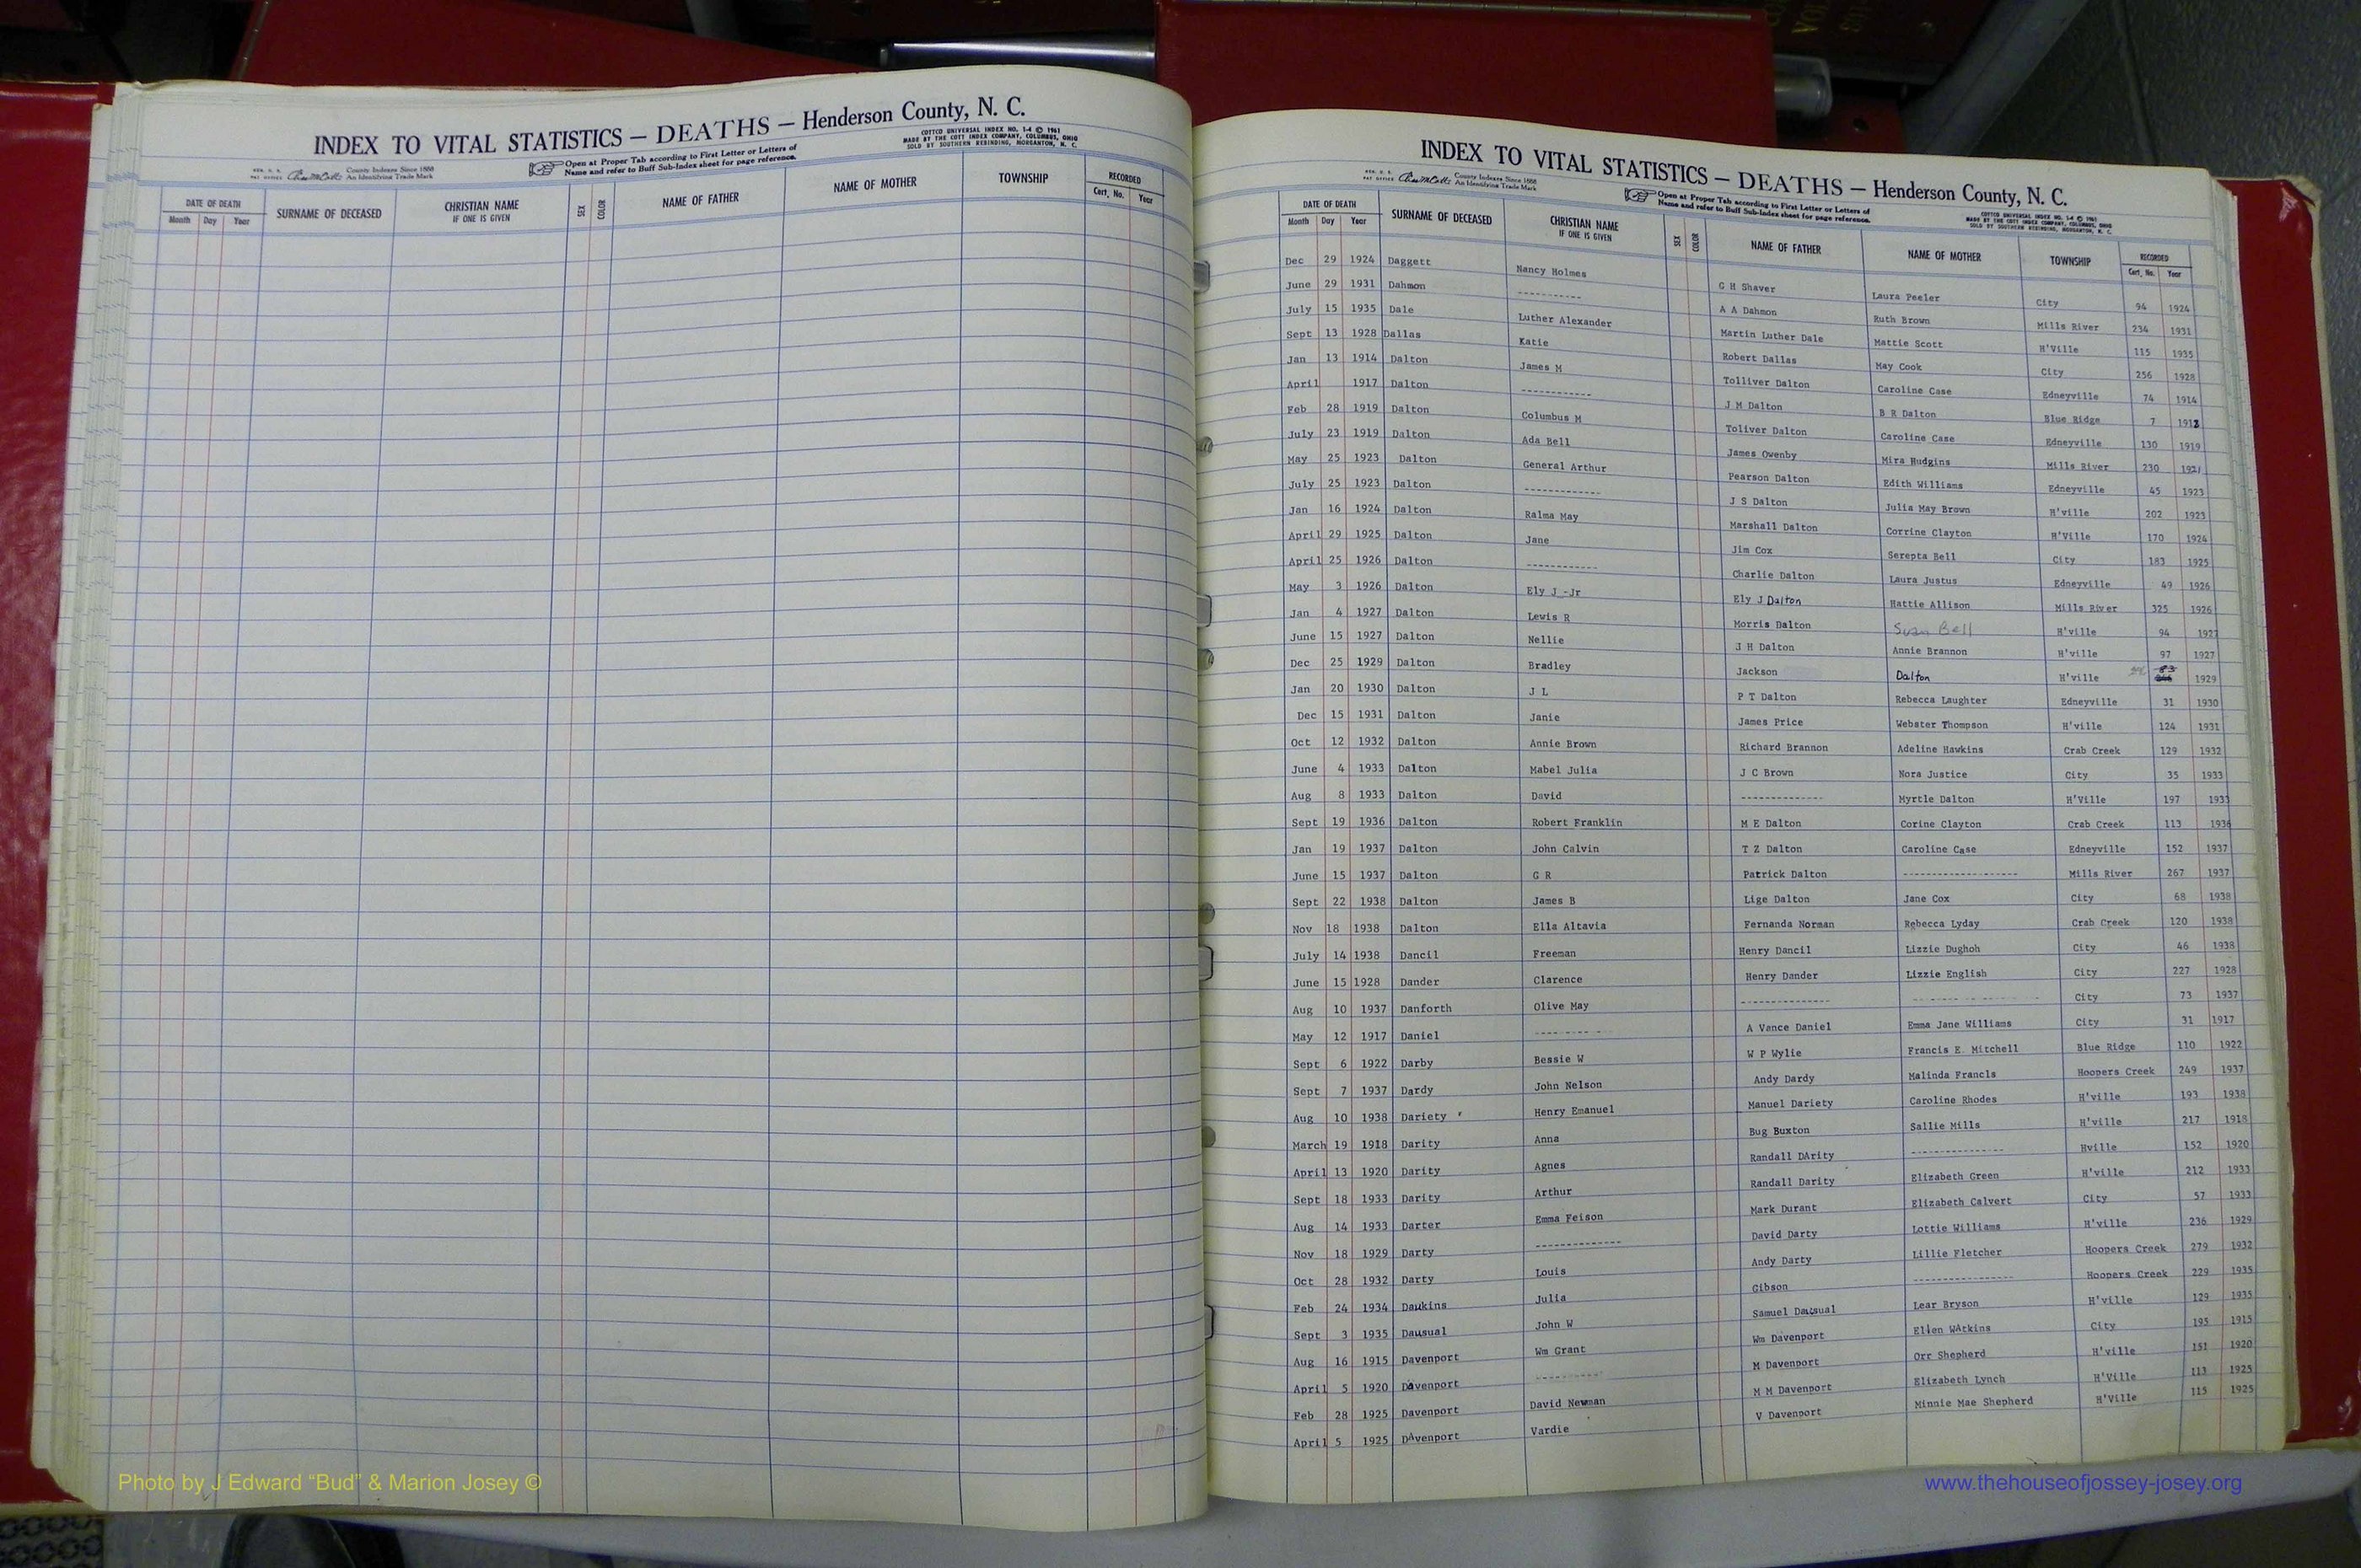 INDEX TO VITAL STATISTICS — DEATHS — Henderson County, N. C.
COTTCO UNIVERSAL INDEX NO. 1-4 © 1961
MADE BY THE COTT INDEX COMPANY, COLUMBUS, OHIO
SOLD BY SOUTHERN REBINDING, MORGANTON, N. C.
County Indexes Since 1888
An Identifying Trade Mark
Open at Proper Tab according to First Letter or Letters of
Name and refer to Buff Sub-Index sheet for page reference.
DATE OF DEATH SURNAME OF DECEASED CHRISTIAN NAME IF ONE IS GIVEN SEX COLOR NAME OF FATHER NAME OF MOTHER TOWNSHIP RECORDED
Month Day Year Cert. No. Year
INDEX TO VITAL STATISTICS — DEATHS — Henderson County, N. C.
County Indexes Since 1888
An Identifying Trade Mark
Open at Proper Tab according to First Letter or Letters of
Name and refer to Buff Sub-Index sheet for page reference.
COTTCO UNIVERSAL INDEX NO. 1-4 © 1961
MADE BY THE COTT INDEX COMPANY, COLUMBUS, OHIO
SOLD BY SOUTHERN REBINDING, MORGANTON, N. C.
DATE OF DEATH SURNAME OF DECEASED CHRISTIAN NAME IF ONE IS GIVEN SEX COLOR NAME OF FATHER NAME OF MOTHER TOWNSHIP RECORDED
Month Day Year Cert. No. Year
Dec 29 1924 Daggett Nancy Holmes G H Shaver Laura Peeler City 94 1924
June 29 1931 Dahmon ----------- A A Dahmon Ruth Brown Mills River 234 1931
July 15 1935 Dale Luther Alexander Martin Luther Dale Mattie Scott H'Ville 115 1935
Sept 13 1928 Dallas Katie Robert Dallas May Cook City 256 1928
Jan 13 1914 Dalton James M Tolliver Dalton Caroline Case Edneyville 74 1914
April 1917 Dalton ------------ J M Dalton B R Dalton Blue Ridge 7
Feb 28 1919 Dalton Columbus M Toliver Dalton Caroline Case Edneyville 130 1919
July 23 1919 Dalton Ada Bell James Owenby Mira Hudgins Mills River 230 1921
May 25 1923 Dalton General Arthur Pearson Dalton Edith Williams Edneyville 45 1923
July 25 1923 Dalton ------------- J S Dalton Julia May Brown H'ville 202 1923
Jan 16 1924 Dalton Ralma May Marshall Dalton Corrine Clayton H'Ville 170 1924
April 29 1925 Dalton Jane Jim Cox Serepta Bell City 183 1925
April 25 1926 Dalton ------------ Charlie Dalton Laura Justus Edneyville 49 1926
May 3 1926 Dalton Ely J -Jr Ely J Dalton Hattie Allison Mills River 325 1926
Jan 4 1927 Dalton Lewis R Morris Dalton Susan Bell H'ville 94 1927
June 15 1927 Dalton Nellie J H Dalton Annie Brannon H'ville 97 1927
Dec 25 1929 Dalton Bradley Jackson Dalton H'ville 1929
Jan 20 1930 Dalton J L P T Dalton Rebecca Laughter Edneyville 31 1930
Dec 15 1931 Dalton Janie James Price Webster Thompson H'ville 124 1931
Oct 12 1932 Dalton Annie Brown Richard Brannon Adeline Hawkins Crab Creek 129 1932
June 4 1933 Dalton Mabel Julia J C Brown Nora Justice City 35 1933
Aug 8 1933 Dalton David ------------- Myrtle Dalton H'Ville 197 1933
Sept 19 1936 Dalton Robert Franklin M E Dalton Corine Clayton Crab Creek 113 1936
Jan 19 1937 Dalton John Calvin T Z Dalton Caroline Case Edneyville 152 1937
June 15 1937 Dalton G R Patrick Dalton ------------------- Mills River 267 1937
Sept 22 1938 Dalton James B Lige Dalton Jane Cox City 68 1938
Nov 18 1938 Dalton Ella Altavia Fernanda Norman Rebecca Lyday Crab Creek 120 1938
July 14 1938 Dancil Freeman Henry Dancil Lizzie Dughoh City 46 1938
June 15 1928 Dander Clarence Henry Dander Lizzie English City 227 1928
Aug 10 1937 Danforth Olive May -------------- ------------------- City 73 1937
May 12 1917 Daniel ------------ A Vance Daniel Emma Jane Williams City 31 1917
Sept 6 1922 Darby Bessie W W P Wylie Francis E. Mitchell Blue Ridge 110 1922
Sept 7 1937 Dardy John Nelson Andy Dardy Malinda Francis Hoopers Creek 249 1937
Aug 10 1938 Dariety Henry Emanuel Manuel Dariety Caroline Rhodes H'ville 193 1938
March 19 1918 Darity Anna Bug Buxton Sallie Mills H'ville 217 1918
April 13 1920 Darity Agnes Randall DArity --------------- Hville 152 1920
Sept 18 1933 Darity Arthur Randall Darity Elizabeth Green H'ville 212 1933
Aug 14 1933 Darter Emma Feison Mark Durant Elizabeth Calvert City 57 1933
Nov 18 1929 Darty -------------- David Darty Lottie Williams H'ville 236 1929
Oct 28 1932 Darty Louis Andy Darty Lillie Fletcher Hoopers Creek 279 1932
Feb 24 1934 Daukins Julia Gibson ---------------- Hoopers Creek 229 1935
Sept 3 1935 Dausual John W Samuel Dausual Lear Bryson H'ville 129 1935
Aug 16 1915 Davenport Wm Grant Wm Davenport Ellen WAtkins City 195 1915
April 5 1920 Davenport ----------- M Davenport Orr Shepherd H'ville 151 1920
Feb 28 1925 Davenport David Newman M M Davenport Elizabeth Lynch H'Ville 113 1925
April 5 1925 DAvenport Vardie V Davenport Minnie Mae Shepherd H'Ville 115 1925
Photo by J Edward “Bud” & Marion Josey ©
www.thehouseofjossey-josey.org